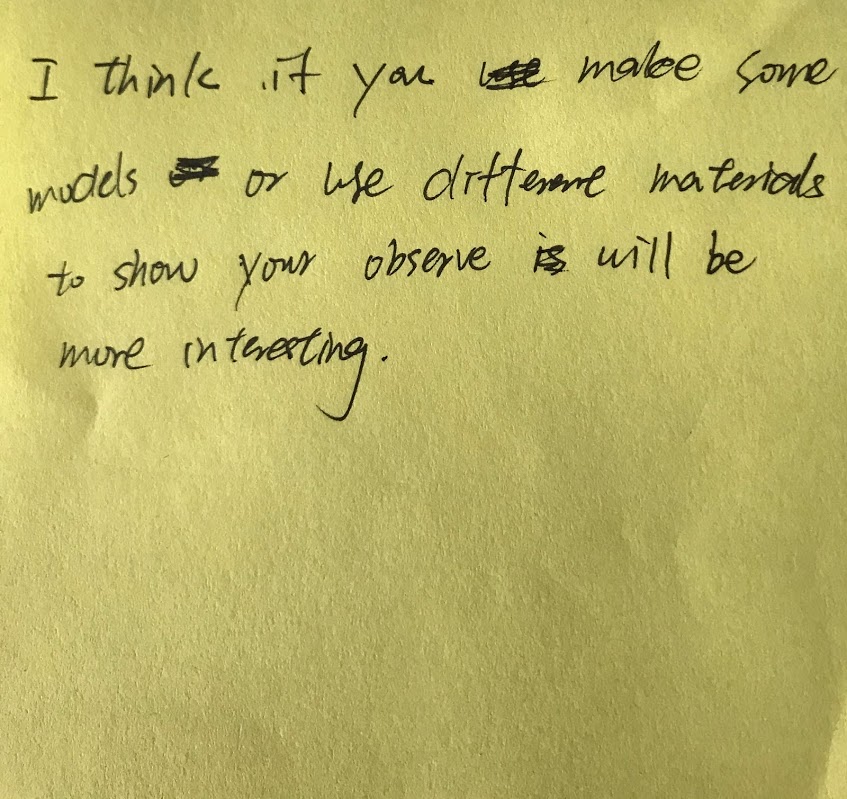 I think if you make some
models or use different materials
to show your observe is will be
more interesting.